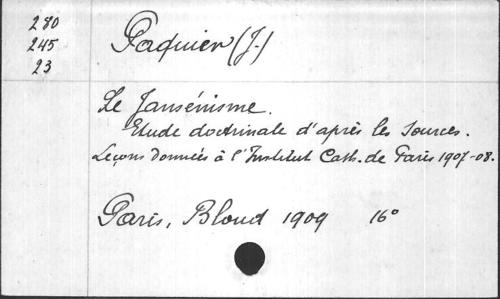 280
245
23
Paquier (J.)
Le Jansénisme.
Etude doctrinale d'après les sources.
Leçons données à l'Institut Cath. de Paris 1907-08.
Paris, Bloud 1909 16°